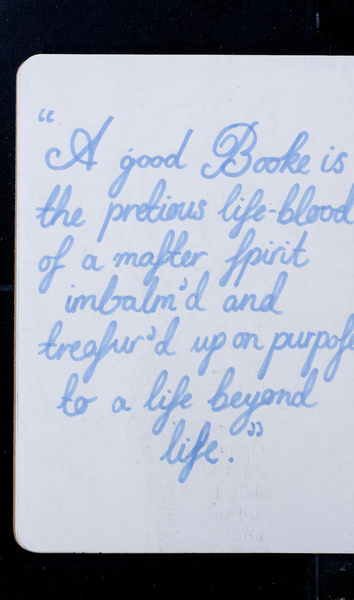 “A good Booke is
the pretious life-blood
of a maſter ſpirit
imbalm'd and
treaſur'd up on purpoſe
to a life beyond
life.”